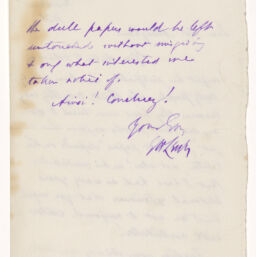 the dull papers would be left
untouched without misgiving
& only what interested one
taken notice of.
Ainsi! Concluez!
Yours Ever